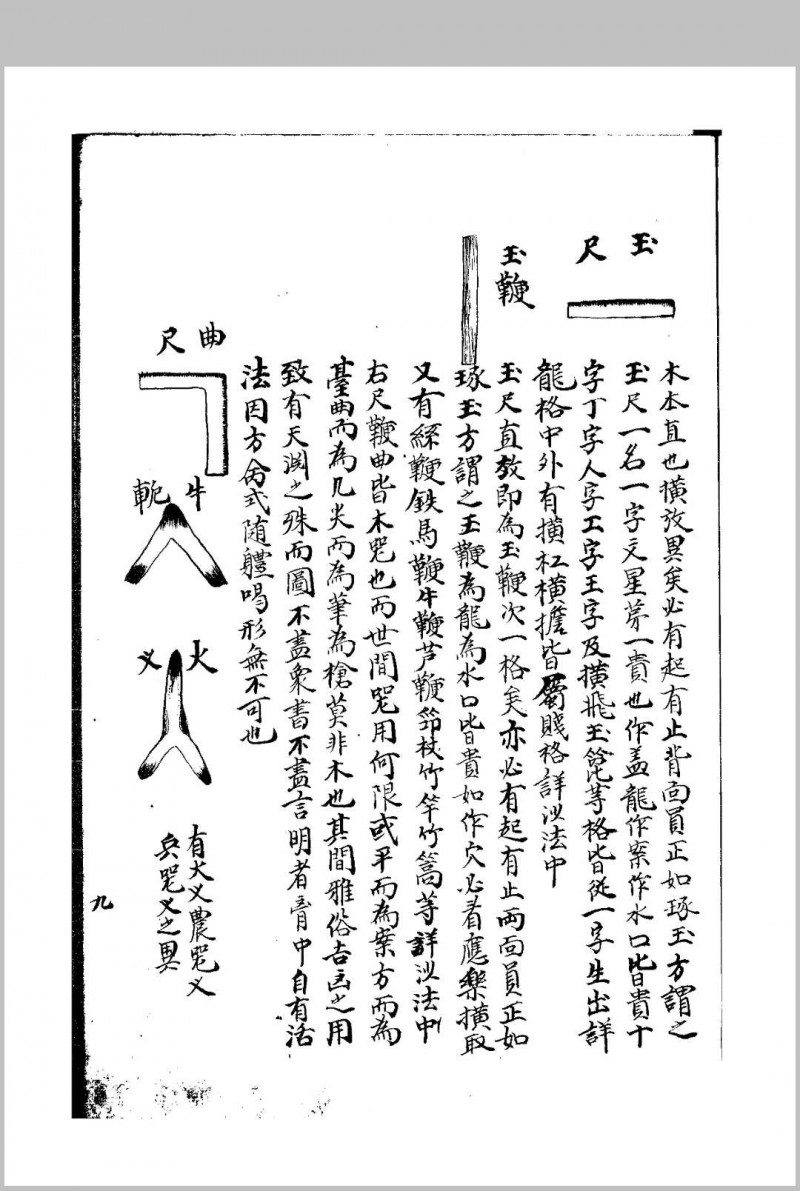 玉尺
木本直也橫放異矣必有起有止背面員正如琢玉方謂之
玉尺一名一字文星第一貴也作盖龍作案作水口皆貴十
字丁字人字工字王字及橫飛玉等格皆從一字生出詳
龍格中外有橫杠橫擔皆屬賤格詳沙法中
玉鞭
玉尺直放即為玉鞭次一格矣亦必有起有止兩面員正如
琢玉方謂之玉鞭為龍為水口皆貴如作穴必看應樂橫取
又有絲鞭鉄馬鞭牛鞭芦鞭笻杖竹竿竹篙等詳沙法中
右尺鞭曲皆木咒也而世間咒用何限或平而為案方而為
臺曲而為几尖而為筆為槍莫非木也其間雅俗吉凶之用
致有天渕之殊而圖不盡象書不盡言明者胷中自有活
法因方舍式隨軆喝形無不可也
曲尺
牛軛
火义
有火义農咒义
兵咒义之異
九